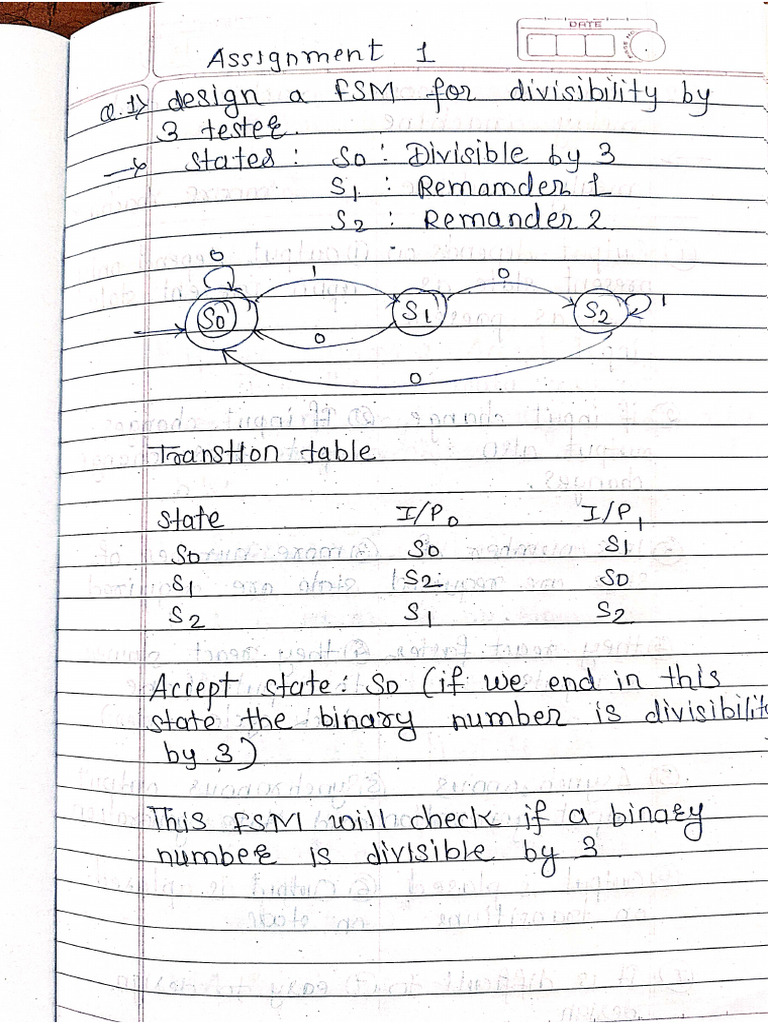 Assignment 1
DATE
Q.1) design a FSM for divisibility by
3 tester.
→ states : S0 : Divisible by 3
S1 : Remamder 1
S2 : Remander 2
0
1
0
S0
S1
S2
1
0
0
Transtion table
State I/P0 I/P1
S0 S0 S1
S1 S2 S0
S2 S1 S2
Accept state : S0 (if we end in this
state the binary number is divisibilit
by 3)
This FSM will check if a binary
number is divisible by 3